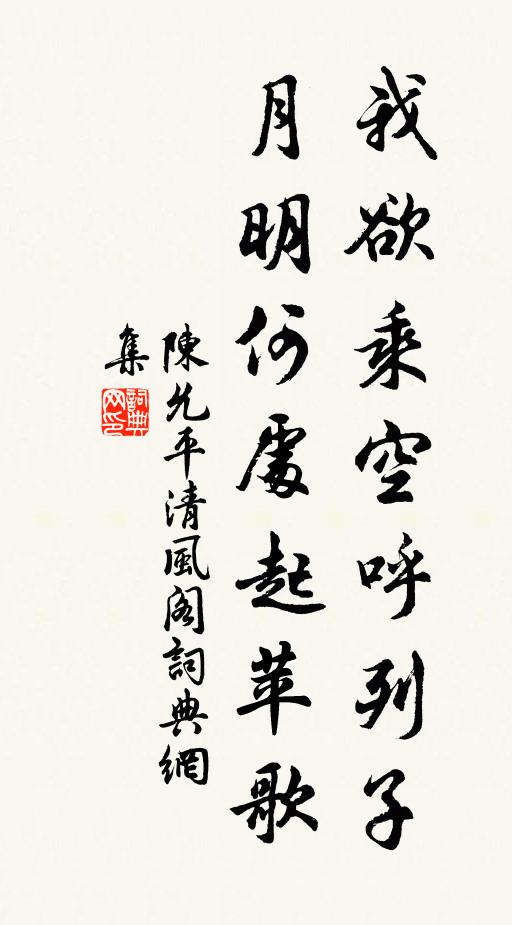 我欲乘空呼列子
月明何處起苹歌
陳允平清風閣詞典網
集
詞典
网印